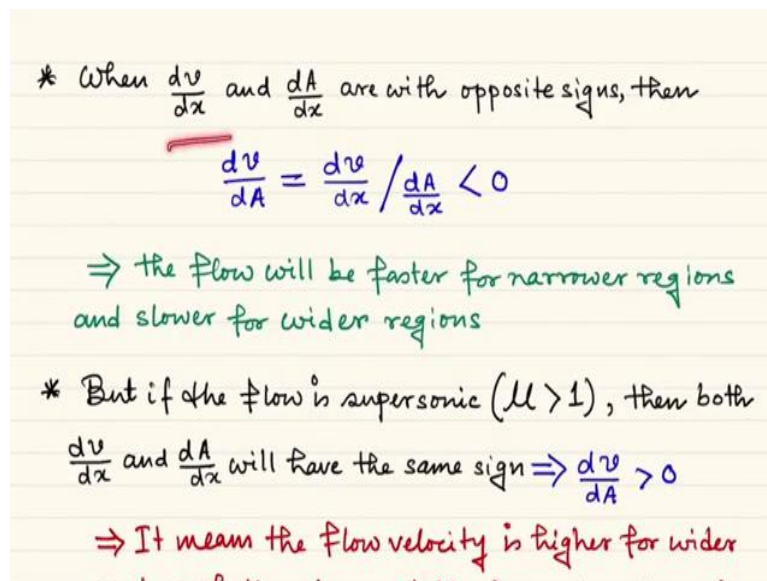 * When dv/dx and dA/dx are with opposite signs, then
dv/dA = dv/dx / dA/dx < 0
⇒ the flow will be faster for narrower regions
and slower for wider regions
* But if the flow is supersonic (M > 1), then both
dv/dx and dA/dx will have the same sign ⇒ dv/dA > 0
⇒ It means the flow velocity is higher for wider